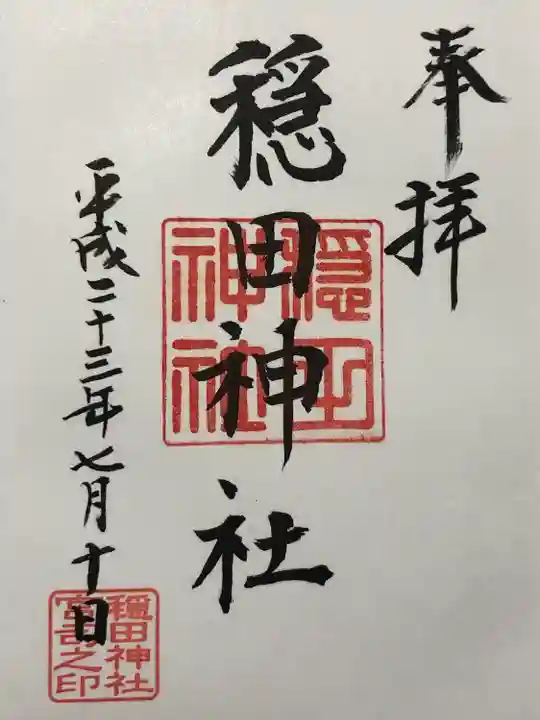 奉拝
穏田神社
平成二十三年七月十日
穏田神社
穏田神社
宮司之印